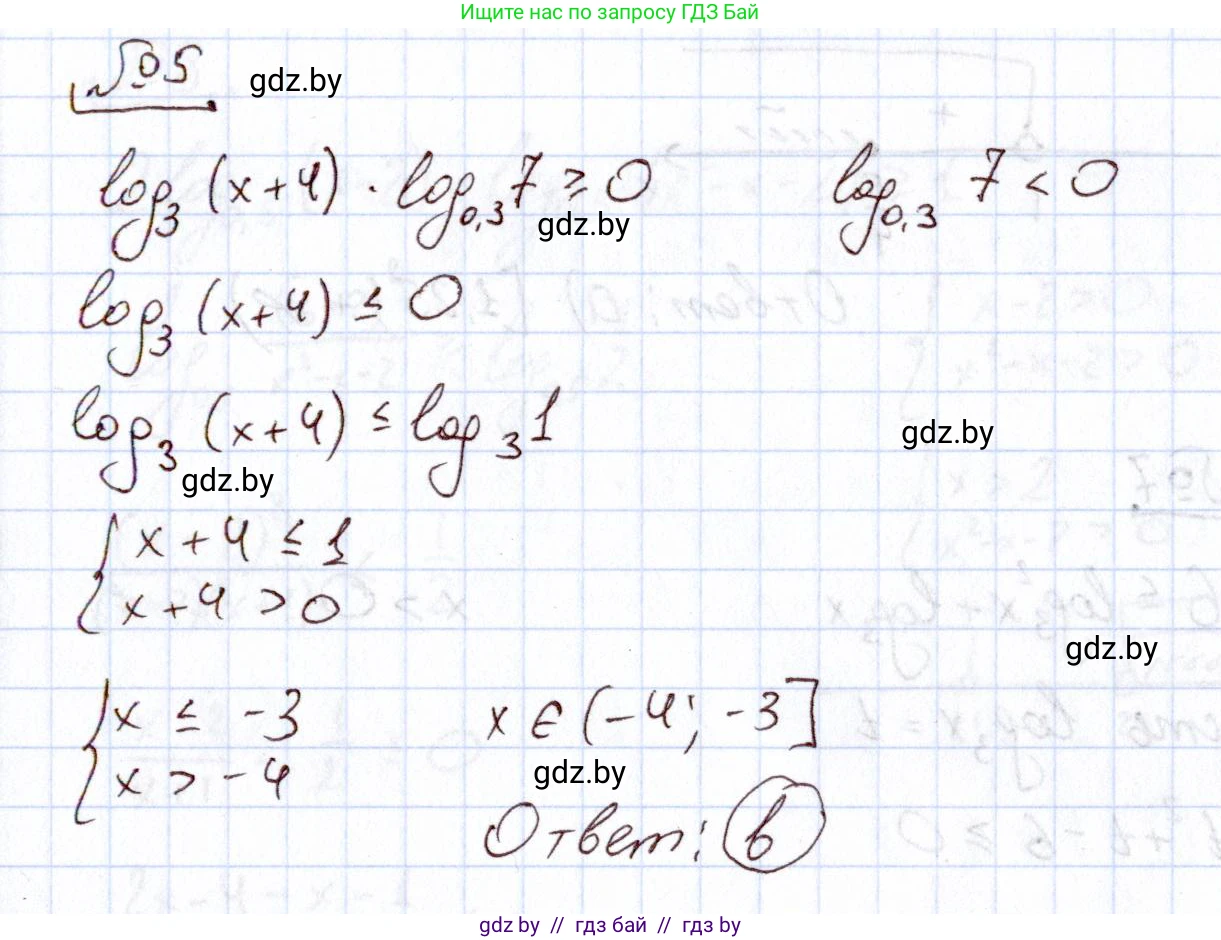 Ищите нас по запросу ГДЗ Бай
№5
gdz.by
log₃(x+4) · log₀,₃7 ≥ 0
log₀,₃ 7 < 0
gdz.by
log₃(x+4) ≤ 0
log₃(x+4) ≤ log₃1
gdz.by
gdz.by
{ x+4 ≤ 1
x+4 > 0
gdz.by
{ x ≤ -3
x > -4
x ∈ (-4; -3]
gdz.by
Ответ: в
gdz.by // гдз бай // гдз by